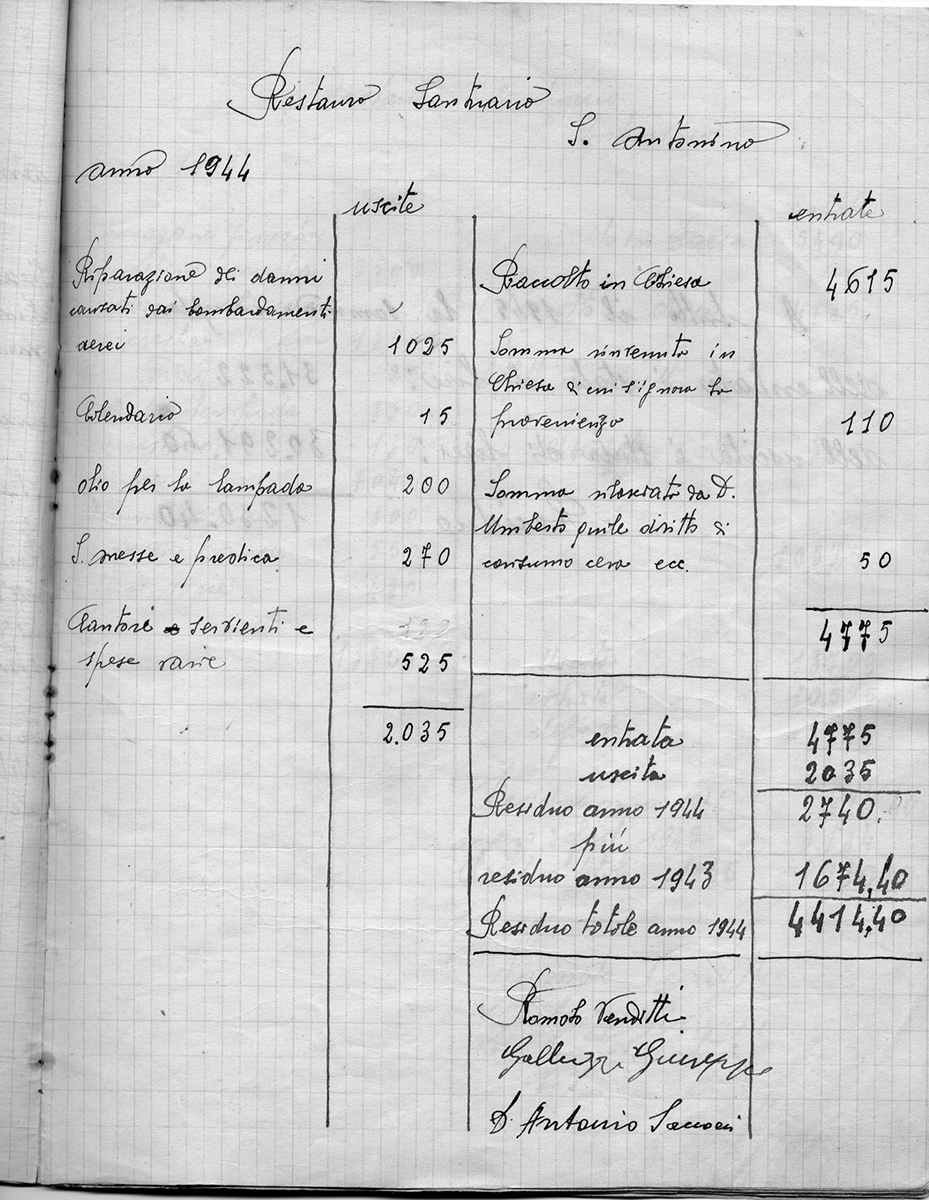 Restauro Santuario
S. Antonino
anno 1944
uscite
Riparazione dei danni
causati dai bombardamenti
aerei 1025
Calendario 15
olio per la lampada 200
S. messe e predica 270
Cantori e servienti e
spese varie 525
2.035
entrate
Raccolto in Chiesa 4615
Somma rinvenuta in
Chiesa di cui s'ignora la
provenienza 110
Somma rilasciata da D.
Umberto quale diritto di
consumo cera ecc. 50
4775
entrata 4775
uscita 2035
Residuo anno 1944 2740.
più
residuo anno 1943 1674,40
Residuo totale anno 1944 4414,40
Romolo Venditti
Galluzzi Giuseppe
D. Antonio